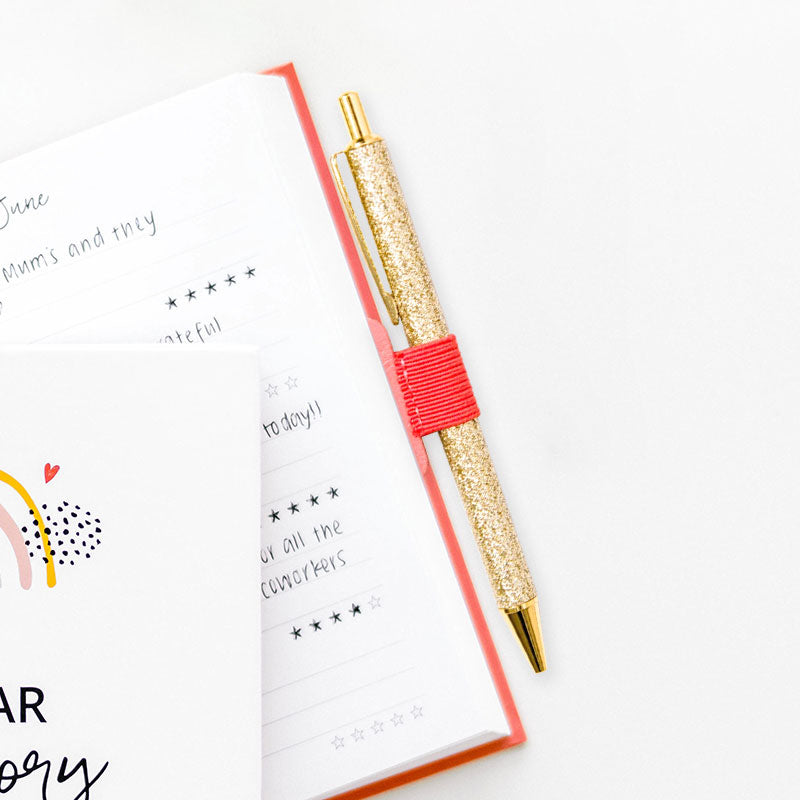 June
Mum's and they
★★★★★
ateful
☆☆
today!!
★★★★★
or all the
coworkers
★★★★☆
☆☆☆☆☆
AR
ory